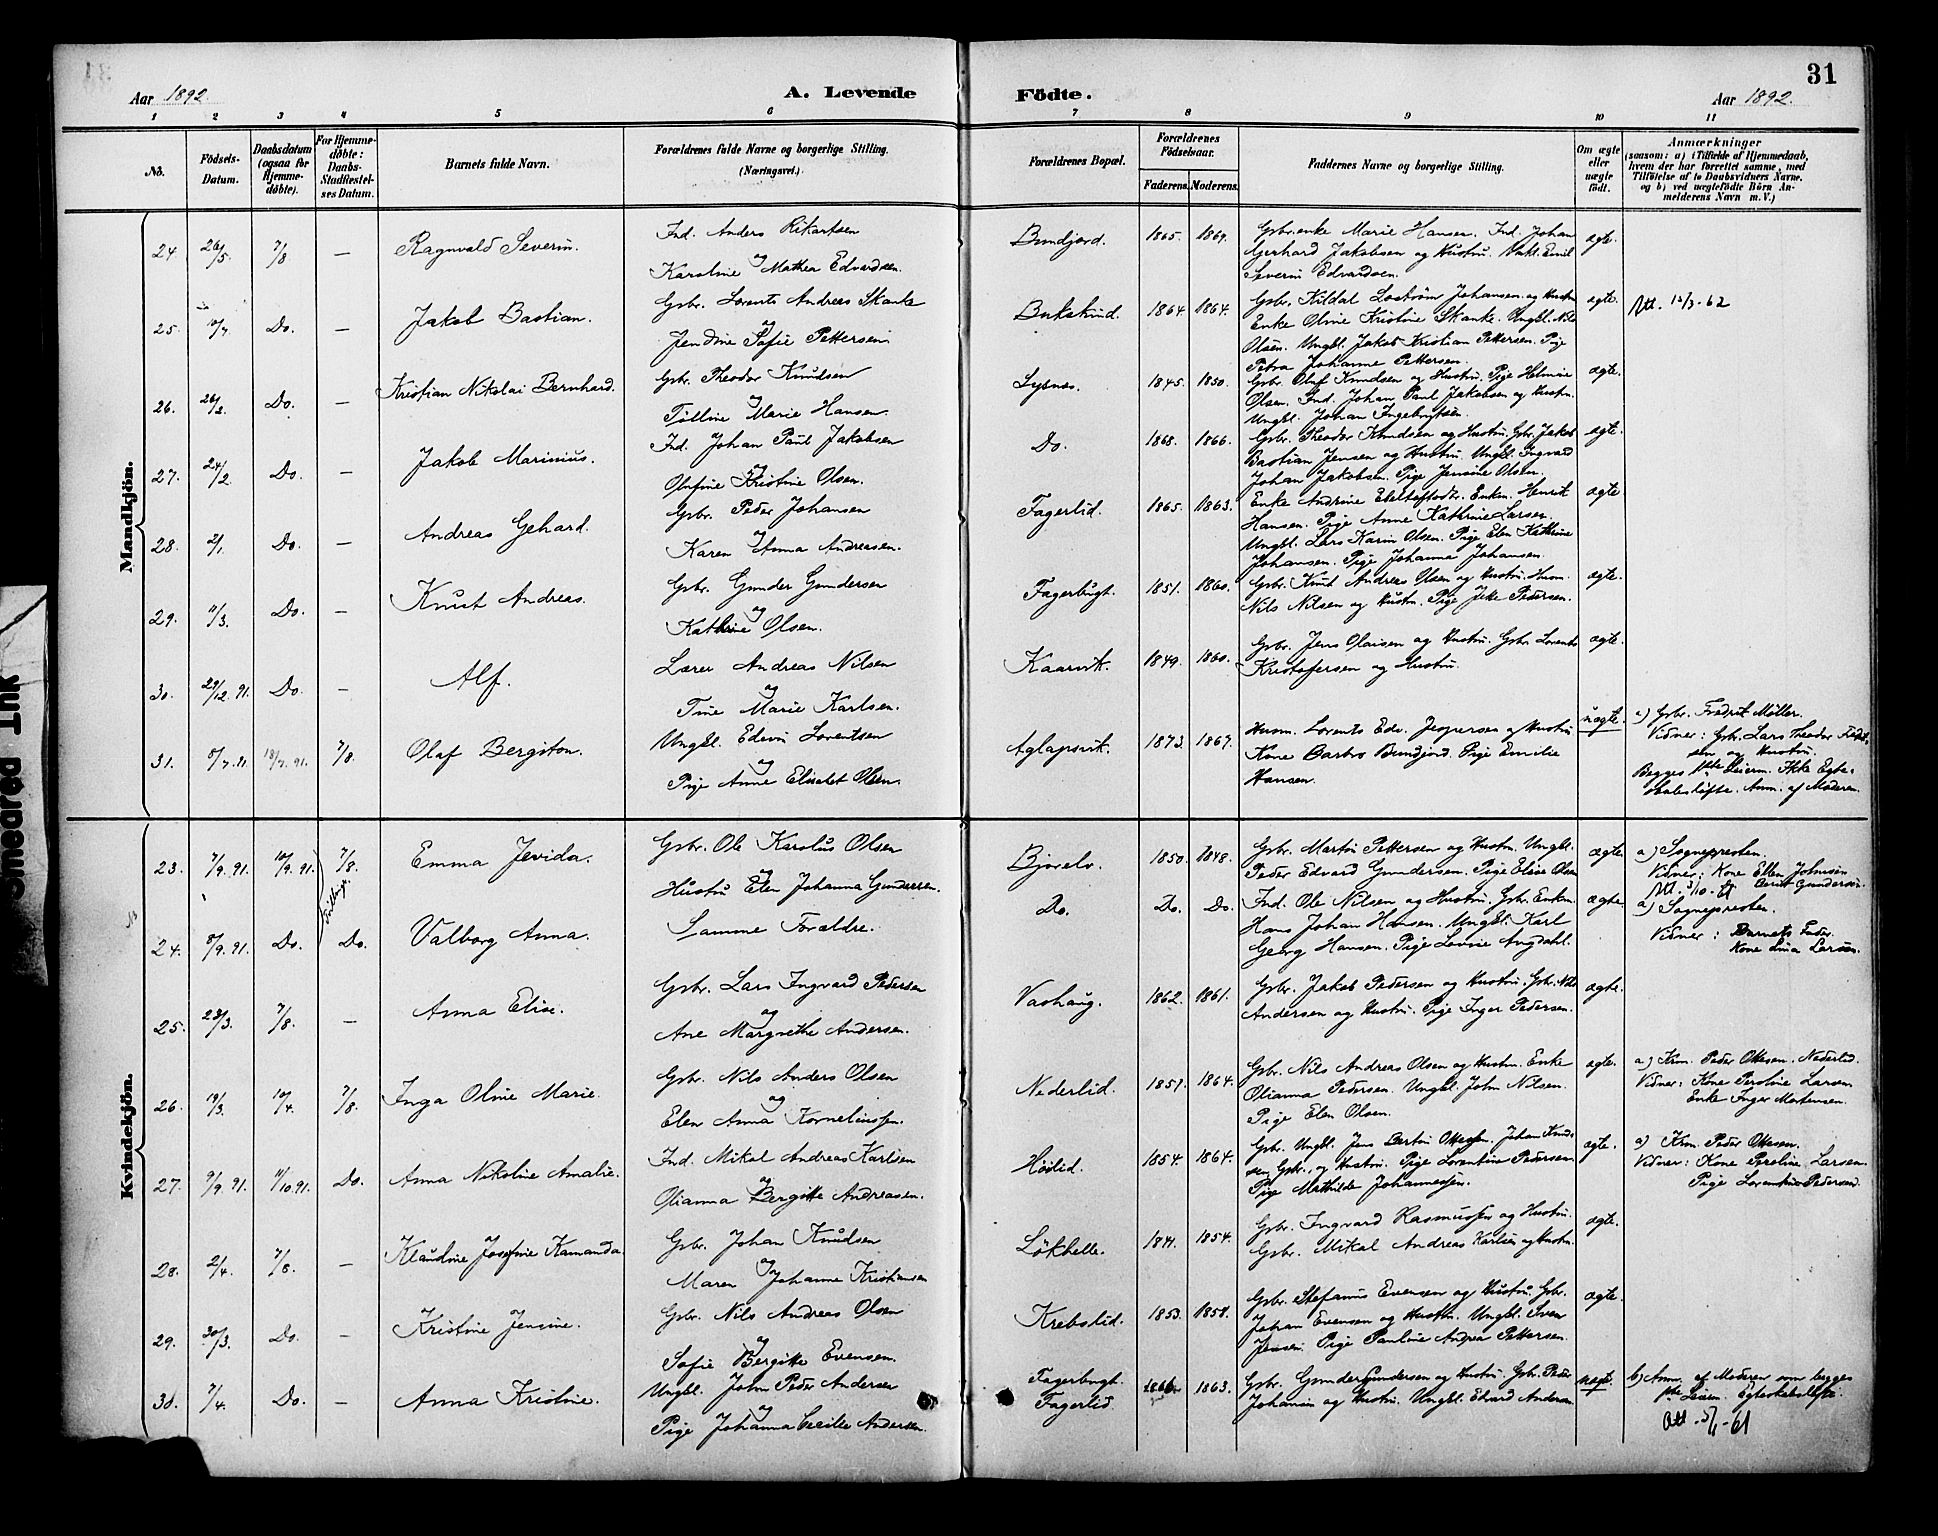 Aar 1892
A. Levende Födte.
Aar 1892.
31
1 2 3 4 5 6 7 8 9 10 11
No.
Födsels-Datum.
Daabsdatum (ogsaa for Hjemme-døbte).
For Hjemme-døbte: Daabs-Stadfæstel-ses Datum.
Barnets fulde Navn.
Forældrenes fulde Navne og borgerlige Stilling. (Næringsvei.)
Forældrenes Bopæl.
Forældrenes Födselsaar.
Faderens. Moderens.
Faddernes Navne og borgerlige Stilling.
Om ægte eller uægte födt.
Anmærkninger
(saasom: a) i Tilfælde af Hjemmedaab, hvem der har forrettet samme, med Tilföielse af to Daabsvidners Navne, og b) ved uægtefödte Börn Anmelderens Navn m. V.)
Mandkjön.
24. 26/5 7/8 — Ragnvald Severin. Ind. Anders Rikartsen og Karoline Mathea Edvardsen. Bundjord. 1865. 1869. Gbr.enke Marie Hansen. Ind. Johan
Gerhard Jakobsen og Hustru. Emil
Severin Edvardsen. ægte.
25. 10/7 Do. — Jakob Bastian. Gbr. Lorents Andreas Skanke og Jendine Sofie Pettersen Bukskind. 1864. 1864. Gbr. Kildal Johansen og Hustru
Enke Oline Kristine Skanke. Ungkl. Nils
Olsen. Ungkl. Jakob Kristian Pettersen. Pige
Petra Johanne Pettersen. ægte. Att. 12/3-62
26. 26/2 Do. — Kristian Nikolai Bernhard. Gbr. Theodor Knudsen og Marie Hansen. Lysnes. 1845. 1850. Gbr. Oluf Knudsen og Hustru. Pige Helmine
Olsen. Ind. Johan Paul Jakobsen og Hustru.
Ungkl. Johan Ingebrigtsen. ægte.
27. 24/2 Do. — Jakob Marinius. Ind. Johan Paul Jakobsen og Olufine Kristine Olsen. Do. 1868. 1866. Gbr. Theodor Knudsen og Hustru. Gbr. Jakob
Bastian Jensen og Hustru. Ungkl. Ingvard
Johan Jakobsen. Pige Jensine Olsen. ægte.
28. 2/1 Do. — Andreas Gehard. Gbr. Peder Johansen og Karen Anna Andreasen. Fagerlid. 1865. 1863. Enke Andrine Ebeltoftodt. Enkm. Henrik
Hansen. Pige Anne Kathrine Larsen.
Ungkl. Lars Karin Olsen. Pige Elen Kathrine
Johansen. Pige Johanna Johansen. ægte.
29. 11/3. Do. — Knut Andreas. Gbr. Gunder Gundersen og Kathrine Olsen. Fagerbugt. 1851. 1860. Gbr. Knut Andreas Olsen og Hustru. Husm.
Nils Nilsen og Hustru. Pige Pedersen. ægte.
30. 29/12. 91. Do. — Alf. Lærer Andreas Nilsen og Tine Marie Karlsen. Kaarvik. 1849. 1860. Gbr. Jens Olaisen og Hustru. Gbr. Lorents
Kristofersen og Hustru. ægte.
31. 8/7. 91. 18/7. 91. 7/8. Olaf Bergiton. Ungkl. Edvin Lorentsen og Pige Anne Elisabet Olsen. Aglapsvik. 1873. 1867. Husm. Lorents Edv. Jespersen og Hustru
Kone Barbro Bundjord. Pige Emilie
Hansen. uægte. a) Gbr. Fredrik Møller.
Vidner: Gbr. Lars Theodor
og Hustru.
Begges 1ste Leierm. Ikke Egte-
skabsløfte. Anm. af Moderen.
Kvindekjön.
23. 7/9. 91. 10/9. 91. 7/8. Tvillinger. Emma Jevida. Gbr. Ole Karolus Olsen og Hustru Elen Johanna Gundersen. Bjorelv. 1850. 1848. Gbr. Martin Pettersen og Hustru. Ungkl.
Peder Edvard Gundersen. Pige Elise Olsen ægte. a) Sognepresten.
Vidner: Kone Ellen Johnsen
Berit Gundersen.
Att. 3/10-
24. 8/9. 91. Do. Do. Valborg Anna. Samme Forældre. Do. Do. Do. Ind. Ole Nilsen og Hustru. Gbr. Enkm.
Hans Johan Hansen. Ungkl. Karl
Georg Hansen. Pige Angdahl. ægte. a) Sognepresten.
Vidner: Barnets Fader.
Kone Lina Larsen.
25. 23/3. 7/8. — Anna Elise. Gbr. Lars Ingvard Pedersen og Ane Margrethe Andersen. Vashaug. 1862. 1861. Gbr. Jakob Pedersen og Hustru. Gbr. Nils
Andersen og Hustru. Pige Inger Pedersen. ægte.
26. 19/3. 10/4. 7/8. Inga Oline Marie. Gbr. Nils Anders Olsen og Elen Anna Korneliussen. Nederlid. 1851. 1864. Gbr. Nils Andreas Olsen og Hustru. Enke
Olianna Pedersen. Ungkl. John Nilsen.
Pige Elen Olsen. ægte. a) Krm. Peder Ottesen. Nederlid.
Vidner: Kone Peroline Larsen
Enke Inger Mortensen.
27. 9/9. 91. 11/10. 91. Do. Anna Nikoline Amalie. Ind. Mikal Andreas Karlsen og Olianna Bergitte Andreasen. Høilid. 1854. 1864. Gbr. Ungkl. Jens Bertin Ottesen. Johan Knud-
sen Gbr., og Hustru. Pige Lorentine Pedersen.
Pige Mathilde Johannessen. ægte. a) Krm. Peder Ottesen.
Vidner: Kone Peroline Larsen.
Pige Lorentine Pedersen.
28. 2/4. 7/8. — Klaudine Josefine Kamanda. Gbr. Johan Knudsen og Maren Johanne Kristiansen Løkhelle. 1841. 1854. Gbr. Ingvard Rasmussen og Hustru.
Gbr. Mikal Andreas Karlsen og Hustru. ægte.
29. 30/3. Do. — Kristine Jensine. Gbr. Nils Andreas Olsen og Sofie Bergitte Evensen. Krebslid. 1853. 1858. Gbr. Stefanus Evensen og Hustru. Gbr.
Johan Evensen og Hustru. Ungkl. Sven
Jensen. Pige Pauline Andrea Pettersen. ægte.
30. 7/4. Do. — Anna Kristine. Ungkl. John Peder Andersen og Pige Johanna Cecilie Andersen. Fagerbugt.
Fagerlid. 1866. 1863. Gbr. Gunder Gundersen og Hustru. Gbr. Peder
Johansen og Hustru. Ungkl. Edvard Andersen. uægte. b) Anm. af Moderen som begges
1ste Leierm. Egteskabsløfte.
Att. 5/1-61